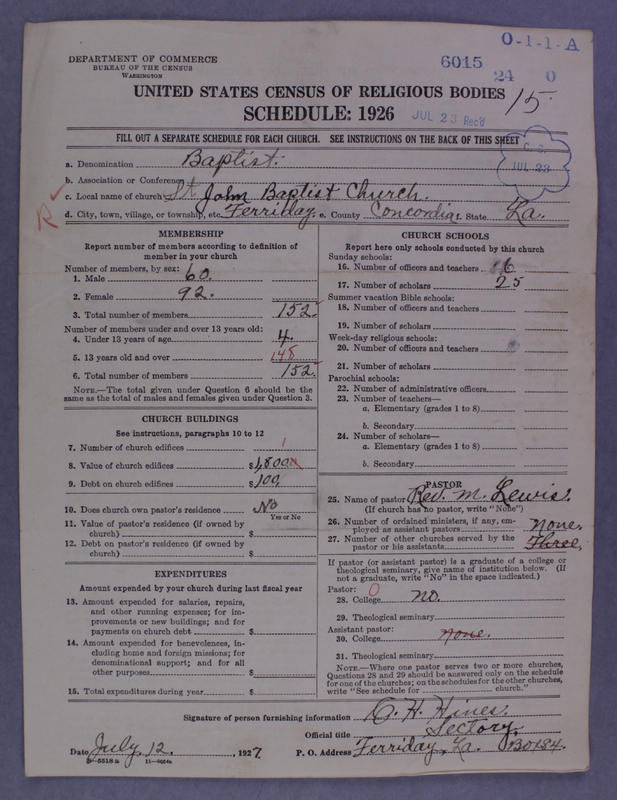 O-1-1-A
DEPARTMENT OF COMMERCE
BUREAU OF THE CENSUS
WASHINGTON
6015
24 0
UNITED STATES CENSUS OF RELIGIOUS BODIES
15.
SCHEDULE: 1926
JUL 23 Rec'd
FILL OUT A SEPARATE SCHEDULE FOR EACH CHURCH. SEE INSTRUCTIONS ON THE BACK OF THIS SHEET
JUL 23
a. Denomination Baptist.
b. Association or Conference
c. Local name of church St John Baptist Church.
R
d. City, town, village, or township, etc. Ferriday. e. County Concordia f. State La.
MEMBERSHIP
Report number of members according to definition of
member in your church
Number of members, by sex:
1. Male 60.
2. Female 92.
3. Total number of members 152.
Number of members under and over 13 years old:
4. Under 13 years of age 4.
5. 13 years old and over 148
6. Total number of members 152.
NOTE.—The total given under Question 6 should be the
same as the total of males and females given under Question 3.
CHURCH BUILDINGS
See instructions, paragraphs 10 to 12
7. Number of church edifices 1
8. Value of church edifices $1,800
9. Debt on church edifices $100.
10. Does church own pastor's residence No
Yes or No
11. Value of pastor's residence (if owned by
church) $
12. Debt on pastor's residence (if owned by
church) $
EXPENDITURES
Amount expended by your church during last fiscal year
13. Amount expended for salaries, repairs,
and other running expenses; for im-
provements or new buildings; and for
payments on church debt $
14. Amount expended for benevolences, in-
cluding home and foreign missions; for
denominational support; and for all
other purposes $
15. Total expenditures during year $
CHURCH SCHOOLS
Report here only schools conducted by this church
Sunday schools:
16. Number of officers and teachers 6
17. Number of scholars 25
Summer vacation Bible schools:
18. Number of officers and teachers
19. Number of scholars
Week-day religious schools:
20. Number of officers and teachers
21. Number of scholars
Parochial schools:
22. Number of administrative officers
23. Number of teachers—
a. Elementary (grades 1 to 8)
b. Secondary
24. Number of scholars—
a. Elementary (grades 1 to 8)
b. Secondary
PASTOR
25. Name of pastor Rev. M. Lewis.
(If church has no pastor, write "None")
26. Number of ordained ministers, if any, em-
ployed as assistant pastors none.
27. Number of other churches served by the
pastor or his assistants Three.
If pastor (or assistant pastor) is a graduate of a college or
theological seminary, give name of institution below. (If
not a graduate, write "No" in the space indicated.)
Pastor: 0
28. College no.
29. Theological seminary
Assistant pastor:
30. College none.
31. Theological seminary
NOTE.—Where one pastor serves two or more churches,
Questions 28 and 29 should be answered only on the schedule
for one of the churches; on the schedules for the other churches,
write "See schedule for church."
Signature of person furnishing information O. H. Hines.
Official title Sectory.
Date July. 12. , 1927.
P. O. Address Ferriday, La. BO184.